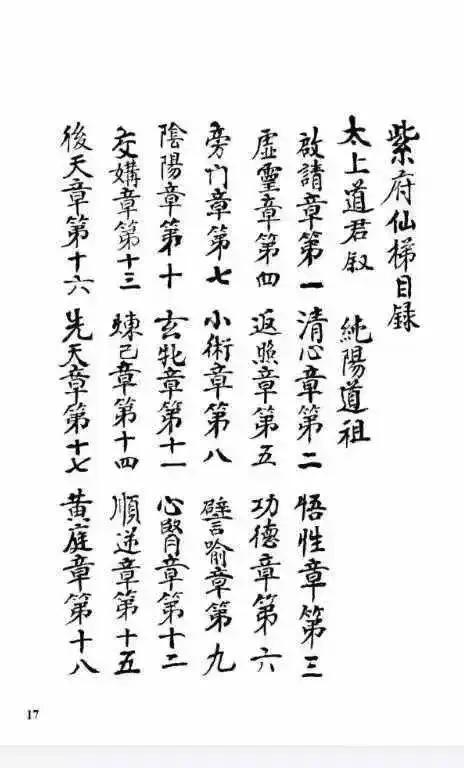 紫府仙梯目録
太上道君叙 純陽道祖
啟請章第一 清心章第二 悟性章第三
虛靈章第四 返照章第五 功德章第六
旁门章第七 小術章第八 譬喻章第九
陰陽章第十 玄牝章第十一 心腎章第十二
交媾章第十三 煉己章第十四 順逆章第十五
後天章第十六 先天章第十七 黄庭章第十八
17